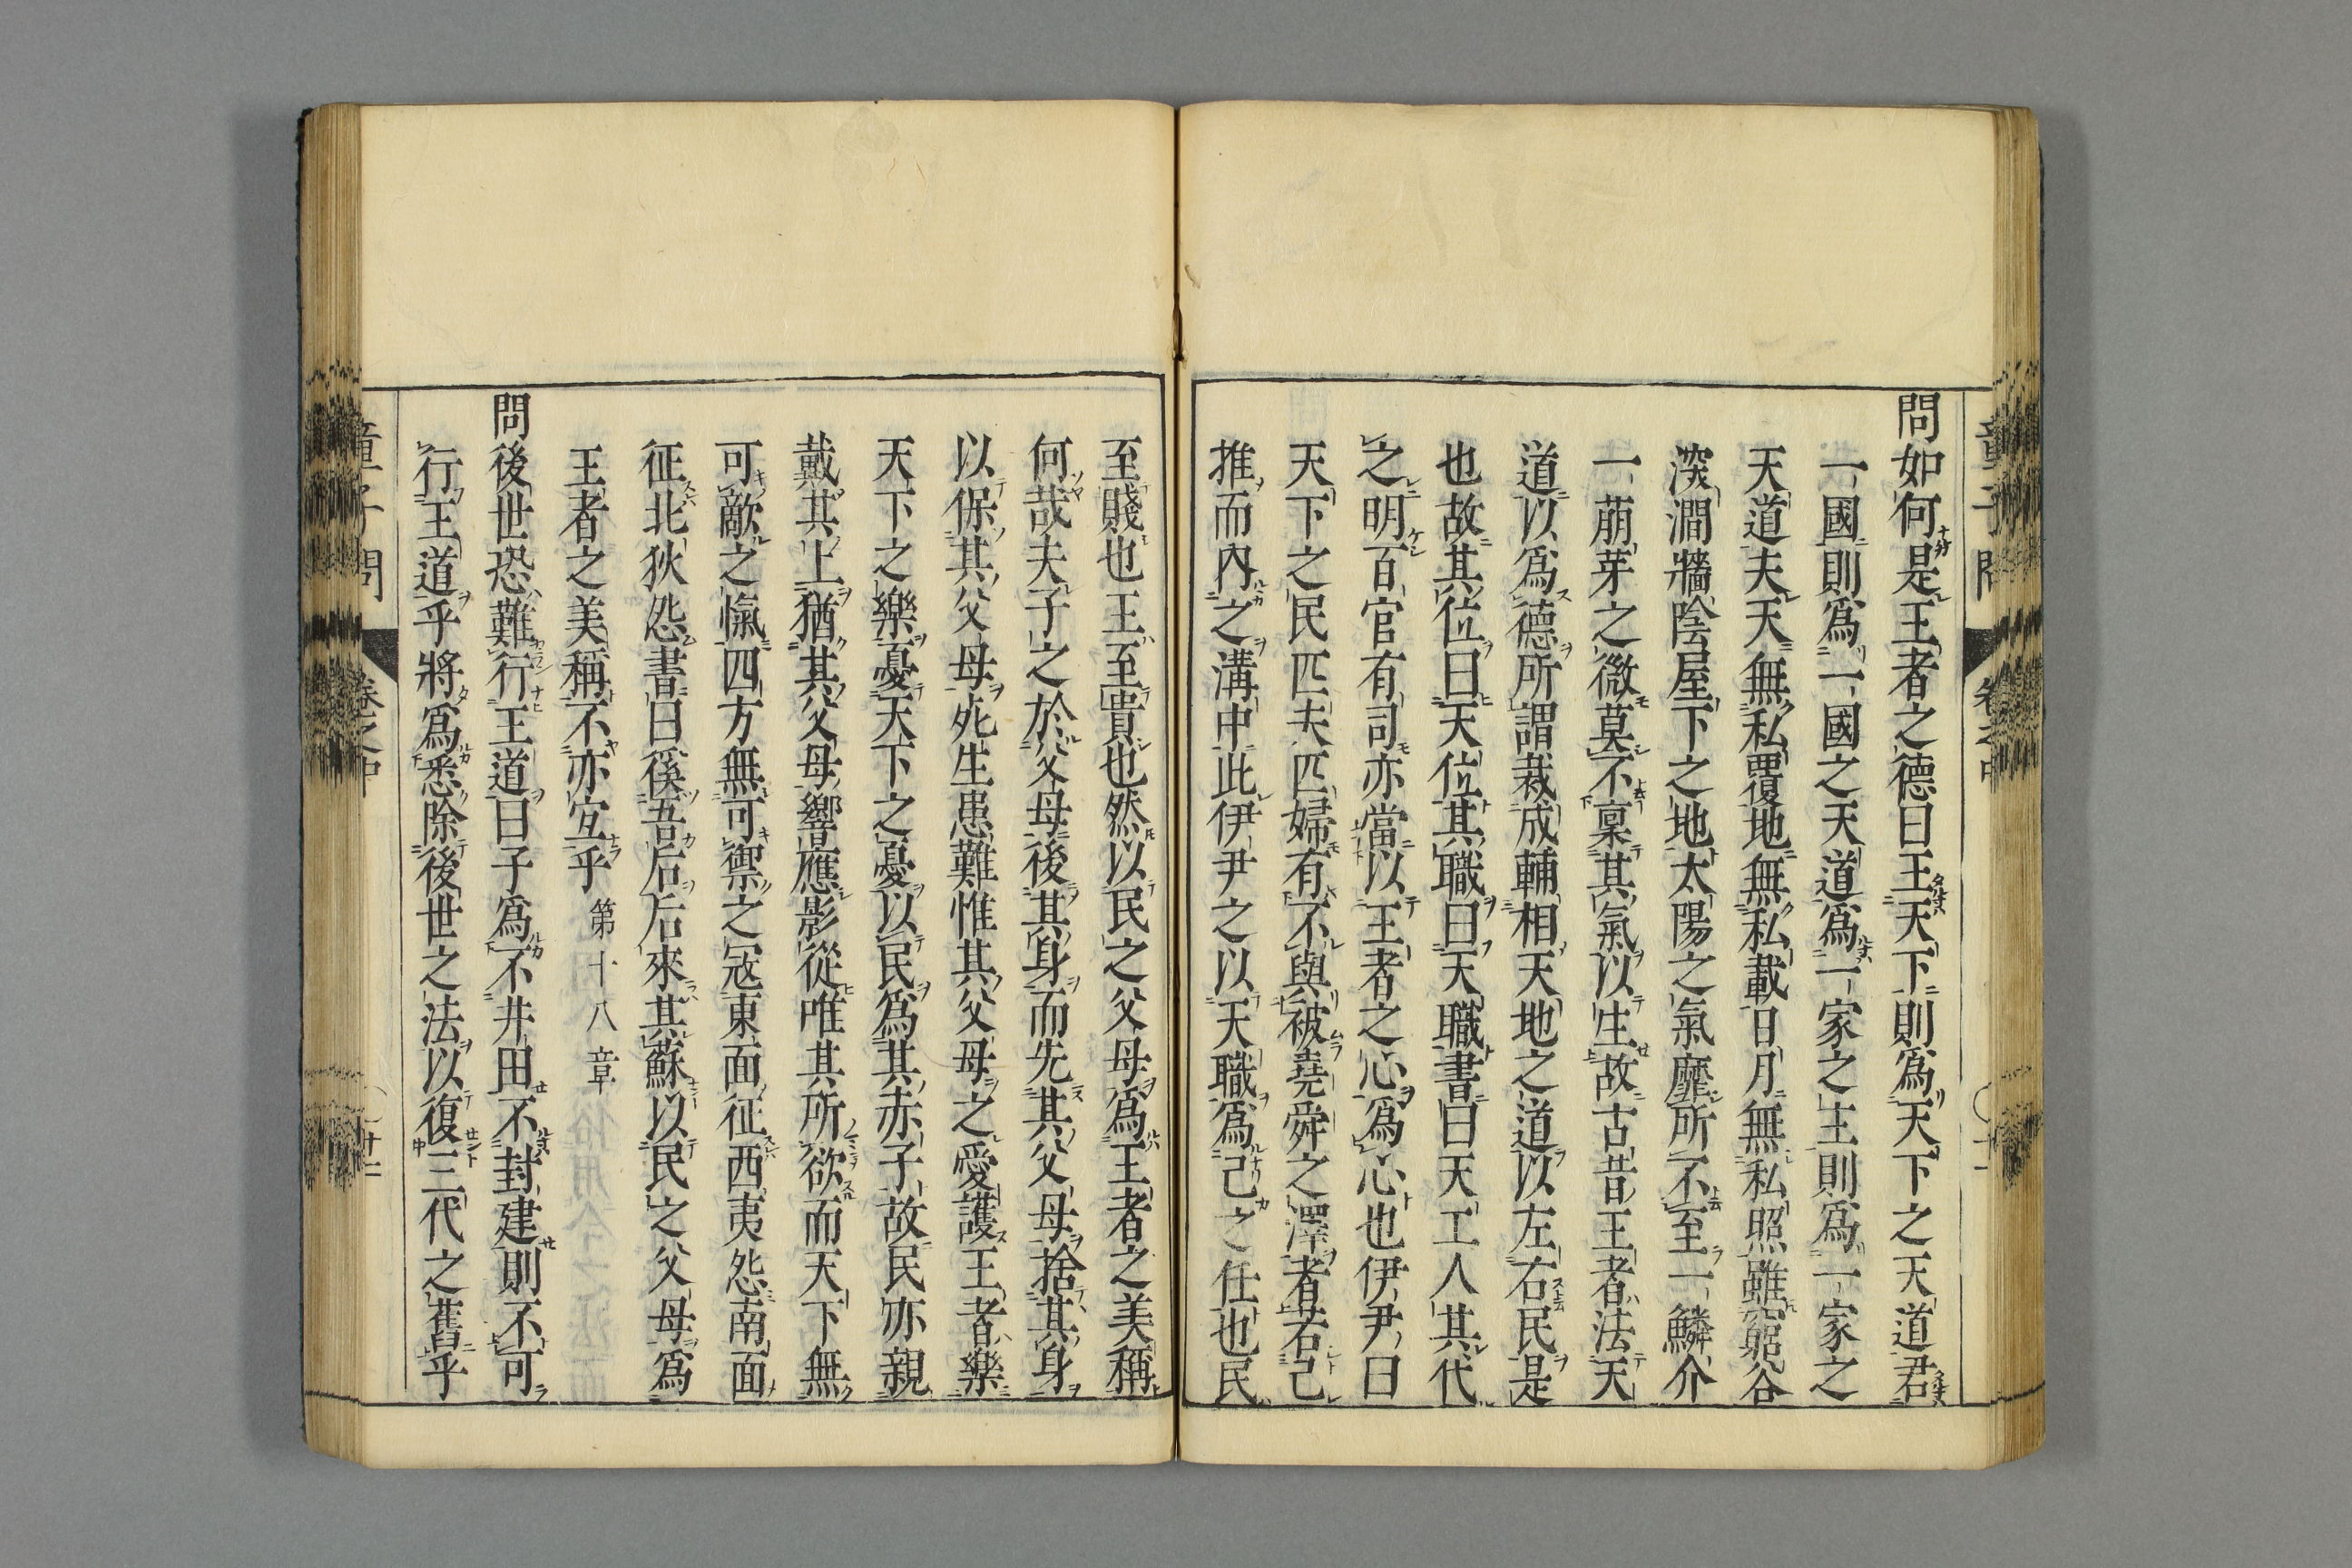 童子問 卷之中
問如何是王者之德曰王天下則爲天下之天道君
一國則爲一國之天道爲一家之主則爲一家之
天道夫天無私覆地無私載日月無私照雖窮谷
深澗牆陰屋下之地太陽之氣靡所不至一鱗介
一萠芽之微莫不稟其氣以生故古昔王者法天
道以爲德所謂裁成輔相天地之道以左右民是
也故其位曰天位其職曰天職書曰天工人其代
之明百官有司亦當以王者之心爲心也伊尹曰
天下之民匹夫匹婦有不與被堯舜之澤者若己
推而內之溝中此伊尹之以天職爲己之任也民
至賤也王至貴也然以民之父母爲王者之美稱
何哉夫子之於父母後其身而先其父母捨其身
以保其父母死生患難惟其父母之愛護王者樂
天下之樂憂天下之憂以民爲其赤子故民亦親
戴其上猶其父母響應影從唯其所欲而天下無
可敵之愾四方無可禦之寇東面征西夷怨南面
征北狄怨書曰徯吾后后來其蘇以民之父母爲
王者之美稱不亦宜乎 第十八章
問後世恐難行王道曰子爲不井田不封建則不可
行王道乎將爲悉除後世之法以復三代之舊乎
童子問 卷之中 廿二